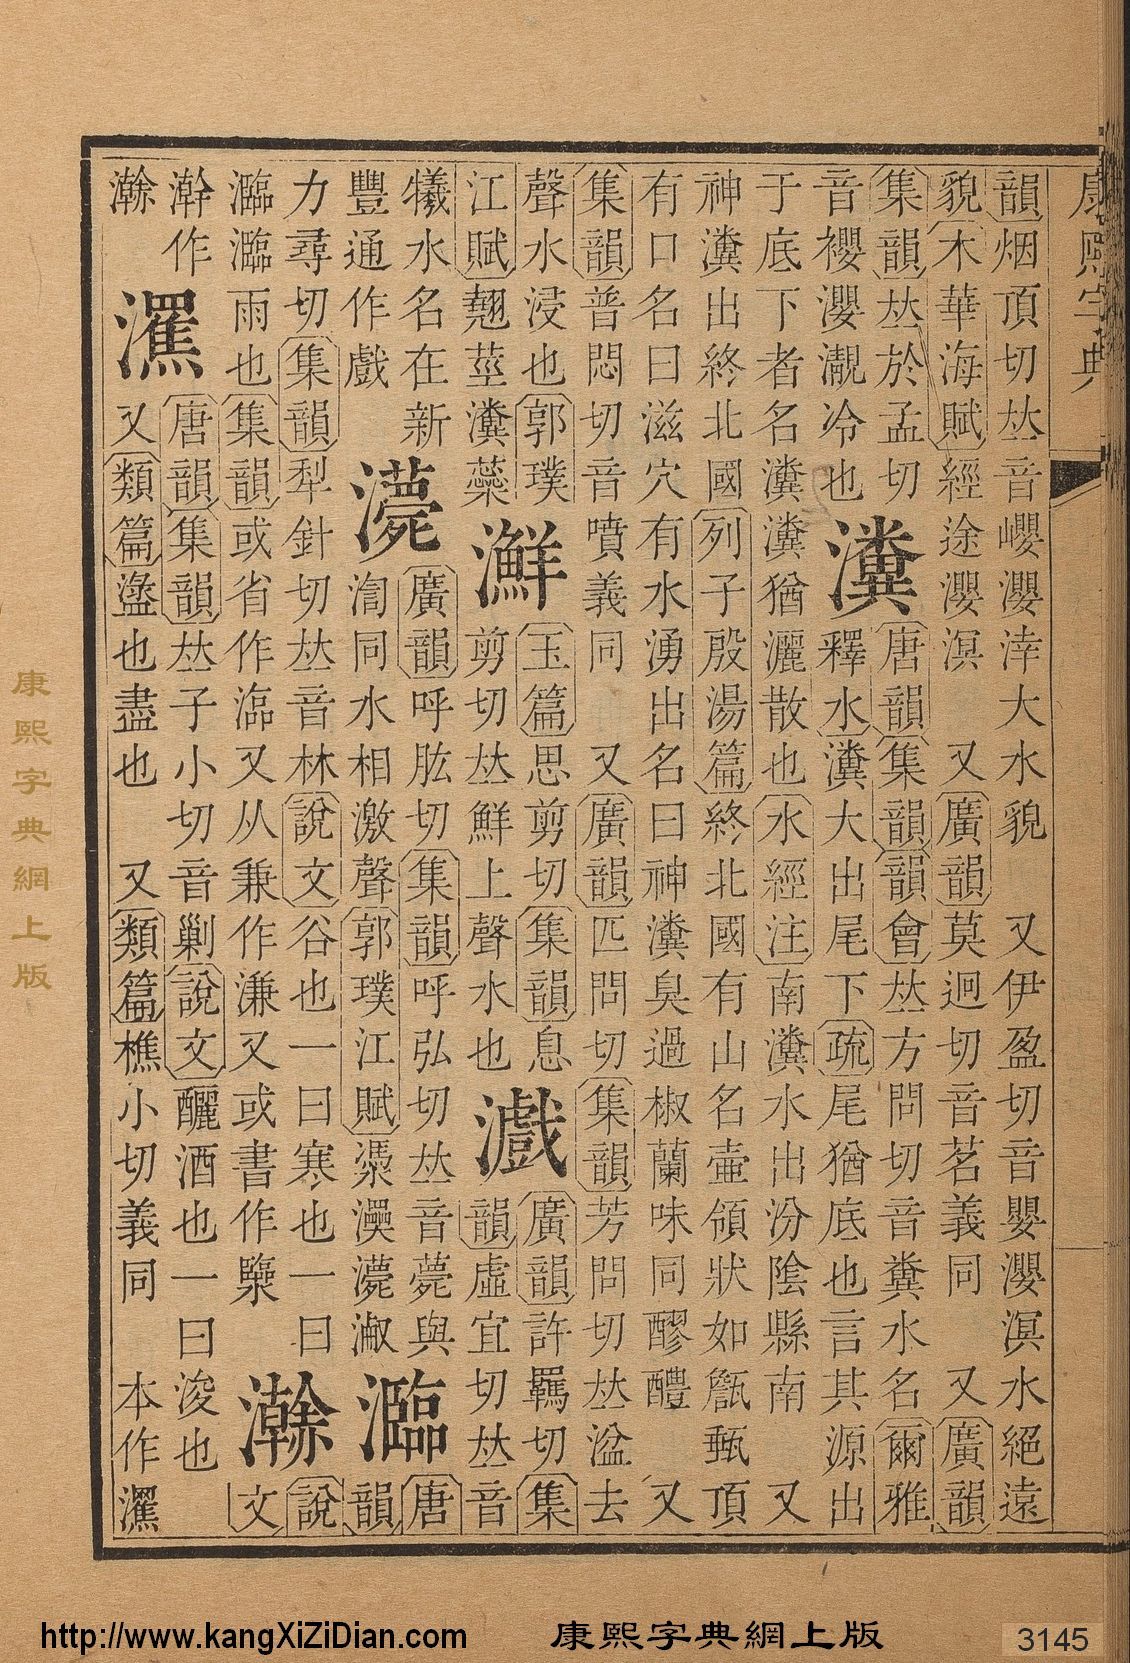 康熙字典
韻烟頂切𠀤音巊瀴涬大水貌 又伊盈切音嬰瀴溟水絕遠
貌木華海賦經途瀴溟 又廣韻莫迥切音茗義同 又廣韻
集韻𠀤於孟切
音瀴冷也
瀵
唐韻集韻韻會𠀤方問切音糞水名爾雅
釋水瀵大出尾下疏尾猶底也言其源出
于底下者名瀵瀵猶灑散也水經注南瀵水出汾陰縣南 又
神瀵出終北國列子殷湯篇終北國有山名壺領狀如甔甀頂
有口名曰滋穴有水湧出名曰神瀵臭過椒蘭味同醪醴 又
集韻普悶切音噴義同 又廣韻匹問切集韻芳問切𠀤湓去
聲水浸也郭璞
江賦翹莖瀵蘂
玉篇思剪切集韻息
剪切𠀤鮮上聲水也
廣韻許羈切集
韻虛宜切𠀤音
犧水名在新
豐通作戲
廣韻呼肱切集韻呼弘切𠀤音薨與
渹同水相激聲郭璞江賦
瀶
唐
韻
力尋切集韻犁針切𠀤音林說文谷也一曰寒也一曰
瀶瀶雨也集韻或省作又从兼作濂又或書作
說
文
榦作
唐韻集韻𠀤子小切音剿說文釃酒也一曰浚也
又類篇盪也盡也 又類篇樵小切義同 本作
康熙字典網上版
http://www.kangXiZiDian.com
康熙字典網上版
3145